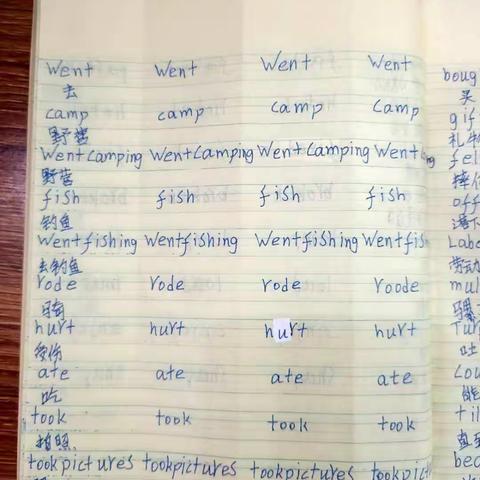 Went Went Went Went
去
camp camp camp camp
野营
Wentcamping Wentcamping Went camping Went
野营
fish fish fish fish
钓鱼
Wentfishing Wentfishing Wentfishing Wentfish
去钓鱼
rode rode rode roode
骑
hurt hurt hurt hurt
受伤
ate ate ate ate
吃
took took took took
拍照
tookpictures tookpictures tookpictures tookpict
boug
买
gif
礼物
fel
off
Labo
劳动
mul
骡
Tur
吐
Cou
能
til
直到
bec